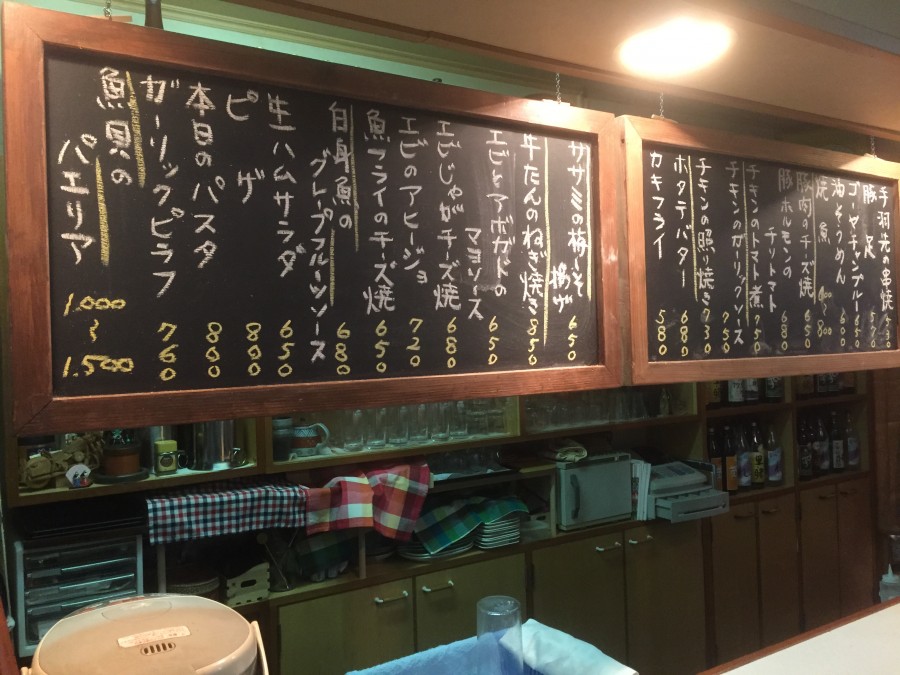 手羽先の串焼 530
豚足 570
ゴーヤチャンプルー 650
油そうめん 600
焼魚 ～800
豚肉のチーズ焼 650
豚ホルモンの
チリトマト 680
チキンのトマト煮 750
チキンのガーリックソース 750
チキンの照り焼き 730
ホタテバター 680
カキフライ 580
ササミの梅しそ
揚げ 650
牛たんのねぎ焼き 850
エビとアボガドの
マヨソース 650
エビじゃがチーズ焼 680
エビのアヒージョ 720
魚フライのチーズ焼 650
白身魚の
グレープフルーツソース 680
生ハムサラダ 650
ピザ 800
本日のパスタ 800
ガーリックピラフ 760
魚貝の
パエリア 1.000～1.500